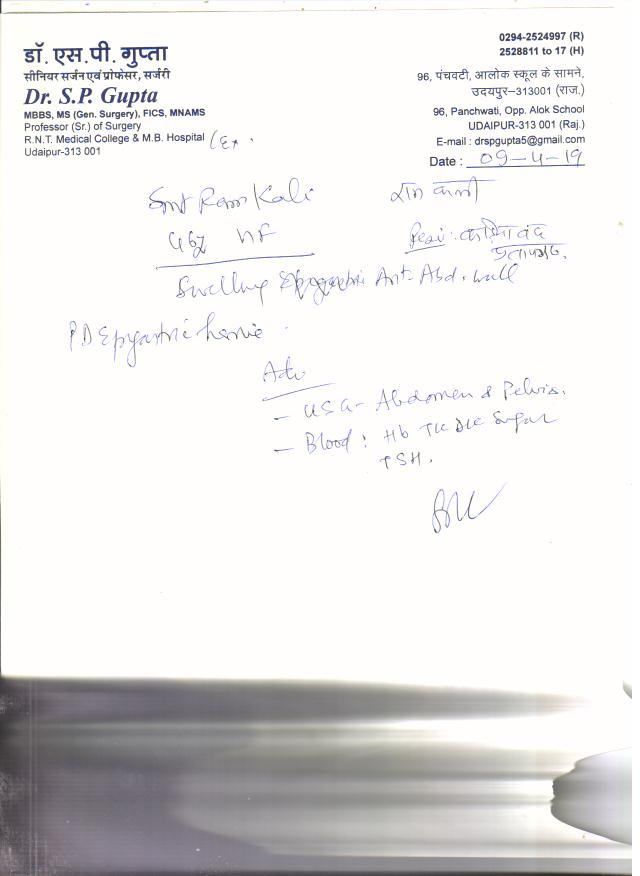 डॉ. एस.पी. गुप्ता
सीनियर सर्जन एवं प्रोफेसर, सर्जरी
Dr. S.P. Gupta
MBBS, MS (Gen. Surgery), FICS, MNAMS
Professor (Sr.) of Surgery
R.N.T. Medical College & M.B. Hospital (Ex.
Udaipur-313 001
0294-2524997 (R)
2528811 to 17 (H)
96, पंचवटी, आलोक स्कूल के सामने,
उदयपुर-313001 (राज.)
96, Panchwati, Opp. Alok School
UDAIPUR-313 001 (Raj.)
E-mail : drspgupta5@gmail.com
Date : 09-4-19
Smt Ram Kali
राम कली
Resi :
प्रतापगढ़.
Swelling Epigastric Ant. Abd. wall
PD Epigastric hernia
Adv
- USG - Abdomen & Pelvis.
- Blood : Hb TLC DLC Sugar
TSH.